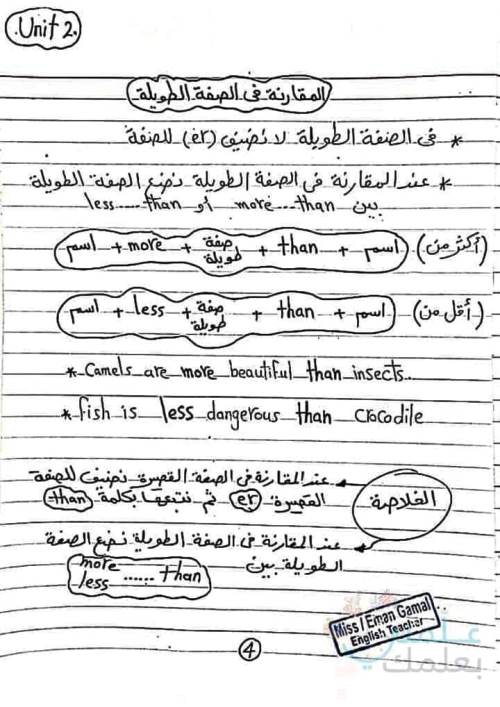 Unit 2.
المقارنة فى الصفة الطويلة
* فى الصفة الطويلة لا نضيف (er) للصفة
* عند المقارنة فى الصفة الطويلة نضع الصفة الطويلة
بين more....than أو less.....than
(أكثر من) اسم + than + صفة طويلة + more + اسم
(أقل من) اسم + than + صفة طويلة + less + اسم
* Camels are more beautiful than insects.
* fish is less dangerous than crocodile
الخلاصة
عند المقارنة فى الصفة القصيرة نضيف للصفة
القصيرة er ثم نتبعها بكلمة than
عند المقارنة فى الصفة الطويلة نضع الصفة
الطويلة بين
more
less ...... than
Miss / Eman Gamal
English Teacher
4